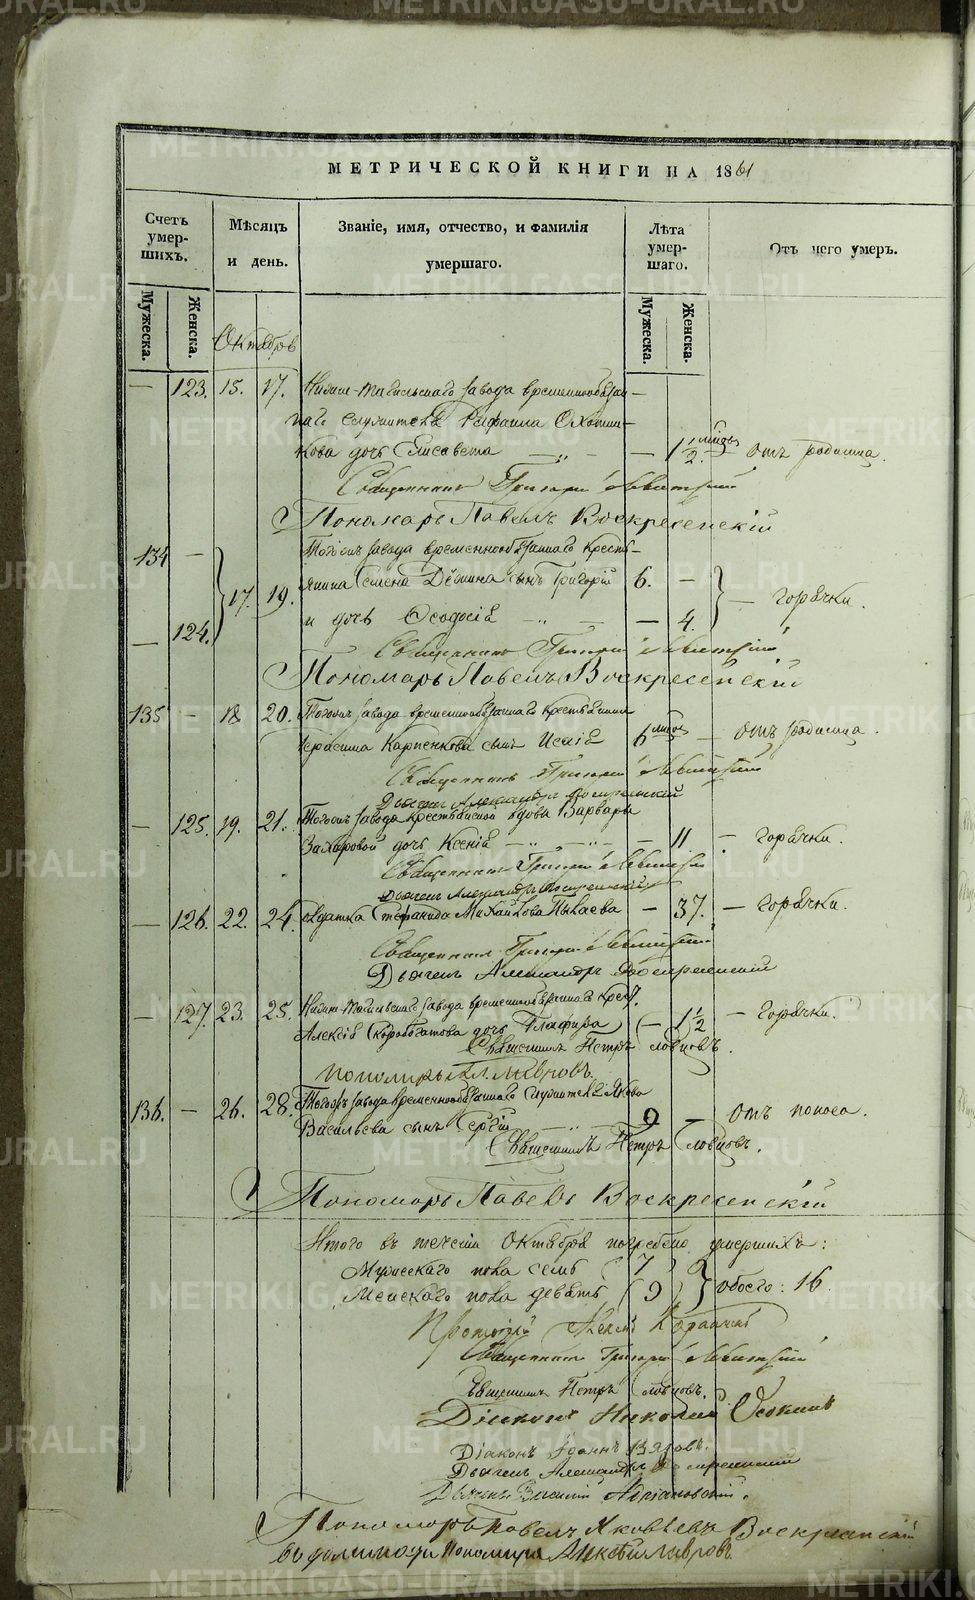 МЕТРИЧЕСКОЙ КНИГИ НА 1861
Счетъ умер-шихъ.
Мѣсяцъ и день.
Званіе, имя, отчество, и фамилія умершаго.
Лѣта умер-шаго.
Отъ чего умеръ.
Мужеска. Женска.
Мужеска. Женска.
Октябрь
— 123. 15. 17. Нижне-Тагильскаго завода временнообязан-
наго служителя Рафаила Охотни-
кова дочь Елисавета — 1 1/2 мѣсяц. отъ родимца.
Священникъ Григорій Левитскій
Пономарь Павелъ Воскресенскій
134 — Тогожъ завода временнообязаннаго кресть-
17. 19. янина Семена Дёмина сынъ Григорій 6. —
— 124. и дочь Ѳеодосія — 4. — горячки.
Священникъ Григорій Левитскій
Пономарь Павелъ Воскресенскій
135 — 18 20. Тогожъ завода временнообязаннаго крестьянина
Герасима Карпенкова сынъ Исаія 6 — отъ родимца.
Священникъ Григорій Левитскій
Дьячекъ Александръ Воскресенскій
— 125. 19. 21. Тогожъ завода крестьянской вдовы Варвары
Захаровой дочь Ксенія — 11 — горячки.
Священникъ Григорій Левитскій
Дьячекъ Александръ Воскресенскій
— 126. 22. 24. Солдатка Стефанида Михайлова — 37. — горячки.
Священникъ Григорій Левитскій
Дьячекъ Александръ Воскресенскій
— 127. 23. 25. Нижне-Тагильскаго завода временнообязаннаго крест.
Алексія Скоробогатова дочь Глафира — 1 1/2 — горячки.
Священникъ Петръ Словцовъ.
Пономарь Ал. Лавровъ.
136. — 26. 28. Тогожъ завода временнообязаннаго служителя Якова
Васильева сынъ Сергій 9 — отъ поноса.
Священникъ Петръ Словцовъ.
Пономарь Павелъ Воскресенскій
Итого въ теченіи Октября погребено умершихъ:
Мужескаго пола семь (7)
Женскаго пола девять (9) обоего: 16.
Протоіерей
Священникъ Григорій Левитскій
Священникъ Петръ Словцовъ.
Діаконъ Николай Осокинъ
Діаконъ Іоаннъ
Дьячекъ Александръ Воскресенскій
Дьячекъ Василій Адріановскій.
Пономарь Павелъ Яковлевъ Воскресенскій
въ должности Пономаря Алексѣй Лавровъ
METRIKI.GASO-URAL.RU